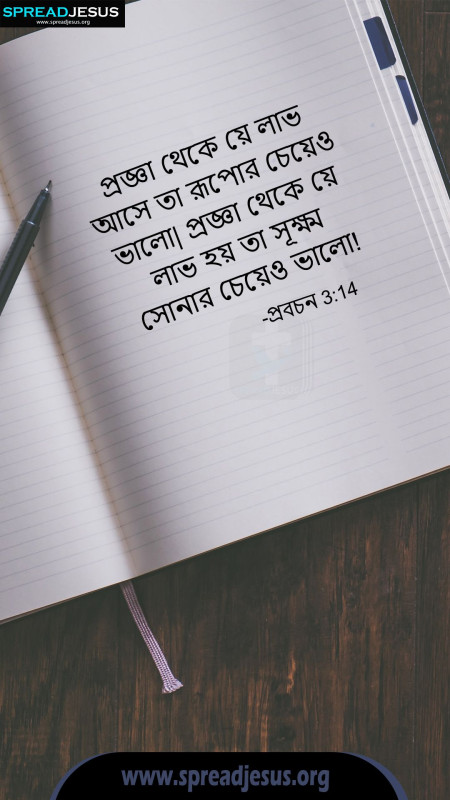 SPREADJESUS
www.spreadjesus.org
প্রজ্ঞা থেকে য়ে লাভ
আসে তা রূপোর চেয়েও
ভালো| প্রজ্ঞা থেকে য়ে
লাভ হয় তা সূক্ষ্ম
সোনার চেয়েও ভালো!
-প্রবচন 3:14
www.spreadjesus.org